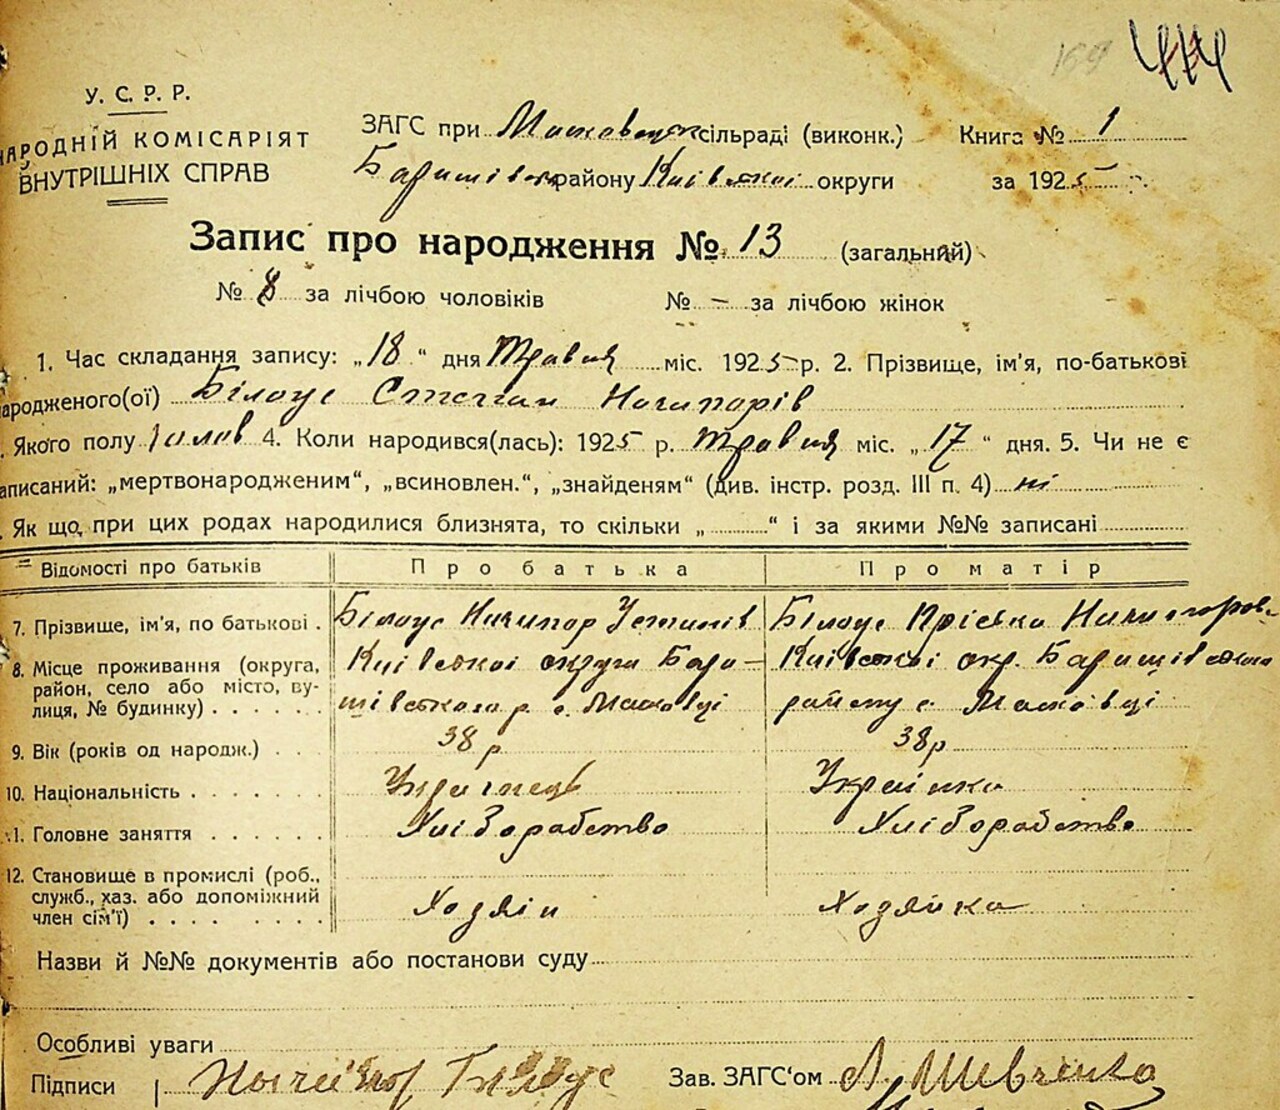 169 444
У. С. Р. Р.
НАРОДНІЙ КОМІСАРІЯТ
ВНУТРІШНІХ СПРАВ
ЗАГС при сільраді (виконк.) Книга № 1
району Київської округи за 1925 р.
Запис про народження № 13 (загальний)
№ 8 за лічбою чоловіків № – за лічбою жінок
1. Час складання запису: „18“ дня Травня міс. 1925 р. 2. Прізвище, ім'я, по-батькові
ародженого(ої) Білоус Степан Ничипорів
. Якого полу 4. Коли народився(лась): 1925 р. Травня міс. „17“ дня. 5. Чи не є
аписаний: „мертвонародженим“, „всиновлен.“, „знайденям“ (див. інстр. розд. III п. 4) ні
. Як що, при цих родах народилися близнята, то скільки „ “ і за якими №№ записані
Відомості про батьків Про батька Про матір
7. Прізвище, ім'я, по батькові . Білоус Ничипор Устимів Білоус Пріська Ничипоров.
8. Місце проживання (округа, район, село або місто, вулиця, № будинку) . . . . . .
Київської округи Бари- Київської окр. Баришівського
шівського р. с. Масківці району с. Масківці
9. Вік (років од народж.) . . . 38 р. 38 р
10. Національність . . . . . . . Українець Українка
.1. Головне заняття . . . . . . Хліборобство Хліборобство
12. Становище в промислі (роб.,
служб., хаз. або допоміжний
член сім'ї) . . . . . . . . Хозяін Хозяйка
Назви й №№ документів або постанови суду
Особливі уваги
Підписи Білоус Зав. ЗАГС'ом Шевченко